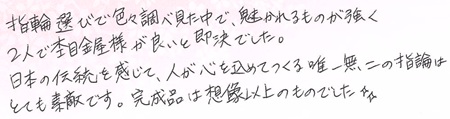 指輪選びで色々調べ見た中で、魅かれるものが強く
2人で杢目金屋様が良いと即決でした。
日本の伝統を感じて、人が心を込めてつくる唯一無二の指論は
とても素敵です。完成品は想像以上のものでした☆☆